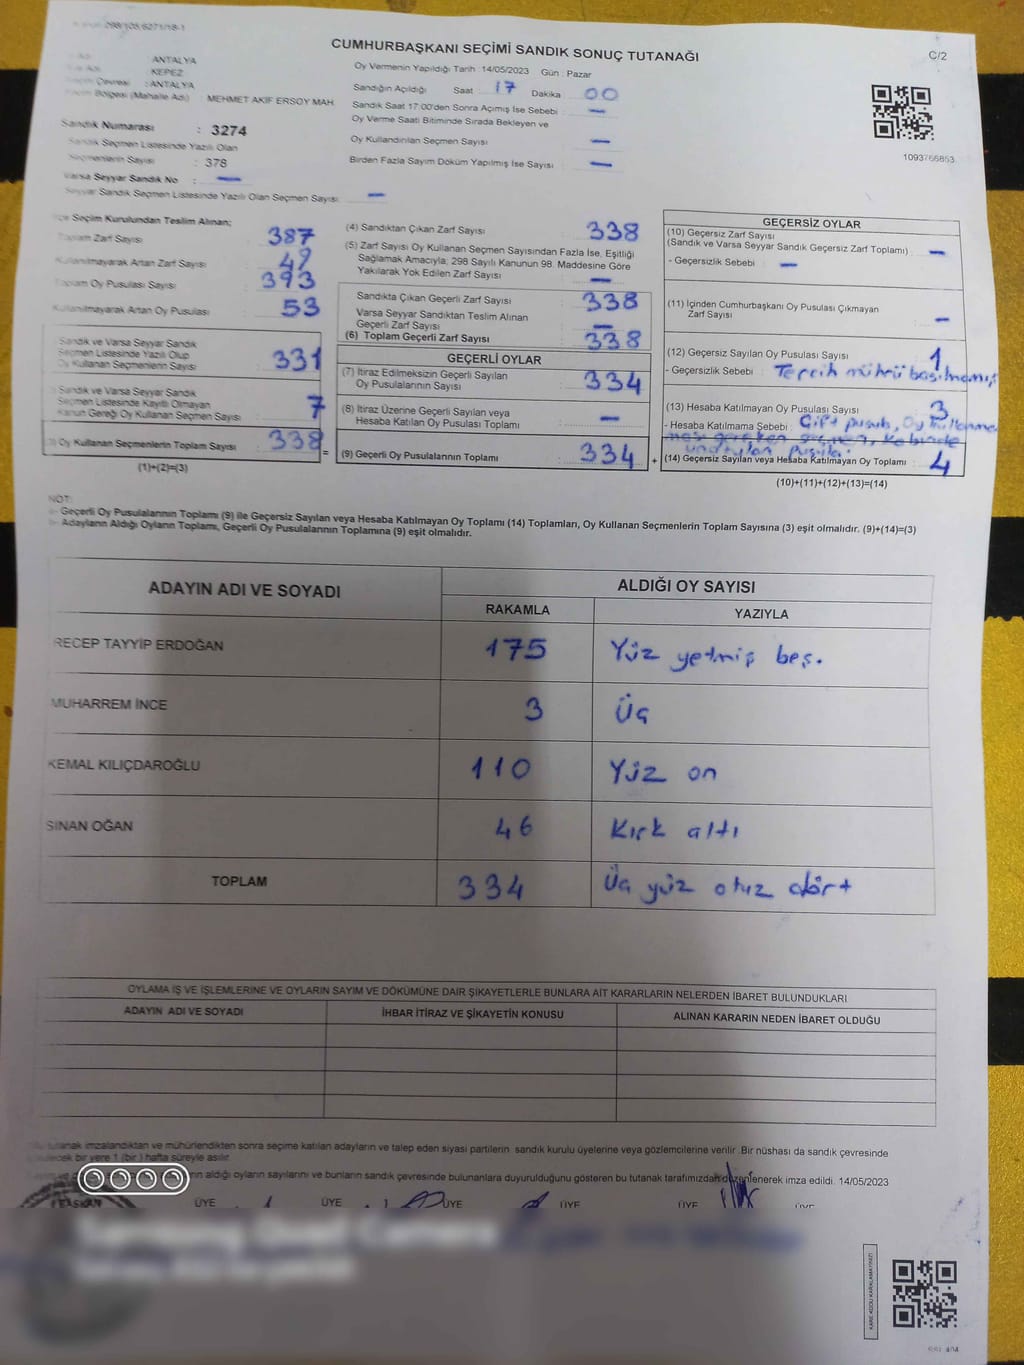 298/105,6271/18-1
CUMHURBAŞKANI SEÇİMİ SANDIK SONUÇ TUTANAĞI
C/2
ANTALYA
KEPEZ
Çevresi : ANTALYA
Bölgesi (Mahalle Adı) : MEHMET AKİF ERSOY MAH.
Sandık Numarası : 3274
Sandık Seçmen Listesinde Yazılı Olan
Seçmenlerin Sayısı : 378
Varsa Seyyar Sandık No : —
Seyyar Sandık Seçmen Listesinde Yazılı Olan Seçmen Sayısı: —
Oy Vermenin Yapıldığı Tarih :14/05/2023 Gün : Pazar
Sandığın Açıldığı Saat : 17 Dakika : 00
Sandık Saat 17:00'den Sonra Açımış İse Sebebi : —
Oy Verme Saati Bitiminde Sırada Bekleyen ve
Oy Kullandırılan Seçmen Sayısı : —
Birden Fazla Sayım Döküm Yapılmış İse Sayısı : —
1093766853
İlçe Seçim Kurulundan Teslim Alınan;
Toplam Zarf Sayısı : 387
Kullanılmayarak Artan Zarf Sayısı : 49
Toplam Oy Pusulası Sayısı : 393
Kullanılmayarak Artan Oy Pusulası : 53
Sandık ve Varsa Seyyar Sandık
Seçmen Listesinde Yazılı Olup
Oy Kullanan Seçmenlerin Sayısı : 331
Sandık ve Varsa Seyyar Sandık
Seçmen Listesinde Kayıtlı Olmayan
Kanun Gereği Oy Kullanan Seçmen Sayısı : 7
(3) Oy Kullanan Seçmenlerin Toplam Sayısı : 338 =
(1)+(2)=(3)
(4) Sandıktan Çıkan Zarf Sayısı : 338
(5) Zarf Sayısı Oy Kullanan Seçmen Sayısından Fazla İse, Eşitliği
Sağlamak Amacıyla, 298 Sayılı Kanunun 98. Maddesine Göre
Yakılarak Yok Edilen Zarf Sayısı : —
Sandıkta Çıkan Geçerli Zarf Sayısı : 338
Varsa Seyyar Sandıktan Teslim Alınan
Geçerli Zarf Sayısı : —
(6) Toplam Geçerli Zarf Sayısı : 338
GEÇERLİ OYLAR
(7) İtiraz Edilmeksizin Geçerli Sayılan
Oy Pusulalarının Sayısı : 334
(8) İtiraz Üzerine Geçerli Sayılan veya
Hesaba Katılan Oy Pusulası Toplamı : —
(9) Geçerli Oy Pusulalarının Toplamı : 334 +
GEÇERSİZ OYLAR
(10) Geçersiz Zarf Sayısı
(Sandık ve Varsa Seyyar Sandık Geçersiz Zarf Toplamı) : —
- Geçersizlik Sebebi : —
(11) İçinden Cumhurbaşkanı Oy Pusulası Çıkmayan
Zarf Sayısı : —
(12) Geçersiz Sayılan Oy Pusulası Sayısı : 1
- Geçersizlik Sebebi : Tercih mührü basılmamış
(13) Hesaba Katılmayan Oy Pusulası Sayısı : 3
- Hesaba Katılmama Sebebi : Çift pusula, Oy kullanma
ması gereken seçmen, Kabinde
unutulan pusula.
(14) Geçersiz Sayılan veya Hesaba Katılmayan Oy Toplamı : 4
(10)+(11)+(12)+(13)=(14)
NOT:
- Geçerli Oy Pusulalarının Toplamı (9) ile Geçersiz Sayılan veya Hesaba Katılmayan Oy Toplamı (14) Toplamları, Oy Kullanan Seçmenlerin Toplam Sayısına (3) eşit olmalıdır. (9)+(14)=(3)
- Adayların Aldığı Oyların Toplamı, Geçerli Oy Pusulalarının Toplamına (9) eşit olmalıdır.
ADAYIN ADI VE SOYADI ALDIĞI OY SAYISI
RAKAMLA YAZIYLA
RECEP TAYYİP ERDOĞAN 175 Yüz yetmiş beş.
MUHARREM İNCE 3 Üç
KEMAL KILIÇDAROĞLU 110 Yüz on
SİNAN OĞAN 46 Kırk altı
TOPLAM 334 Üç yüz otuz dört
OYLAMA İŞ VE İŞLEMLERİNE VE OYLARIN SAYIM VE DÖKÜMÜNE DAİR ŞİKAYETLERLE BUNLARA AİT KARARLARIN NELERDEN İBARET BULUNDUKLARI
ADAYIN ADI VE SOYADI İHBAR İTİRAZ VE ŞİKAYETİN KONUSU ALINAN KARARIN NEDEN İBARET OLDUĞU
tutanak imzalandıktan ve mühürlendikten sonra seçime katılan adayların ve talep eden siyasi partilerin sandık kurulu üyelerine veya gözlemcilerine verilir. Bir nüshası da sandık çevresinde
bir yere 1 (bir) hafta süreyle asılır.
aldığı oyların sayılarını ve bunların sandık çevresinde bulunanlara duyurulduğunu gösteren bu tutanak tarafımızdan düzenlenerek imza edildi. 14/05/2023
BAŞKAN ÜYE ÜYE ÜYE ÜYE ÜYE ÜYE